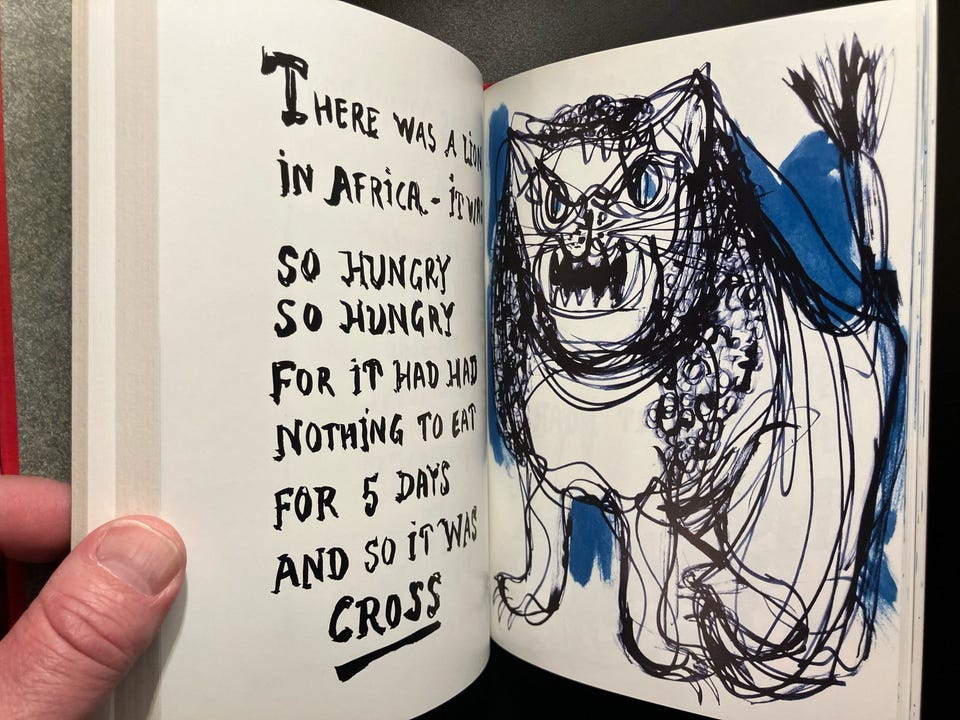 THERE WAS A LION
IN AFRICA - IT WAS
SO HUNGRY
SO HUNGRY
FOR IT HAD HAD
NOTHING TO EAT
FOR 5 DAYS
AND SO IT WAS
CROSS